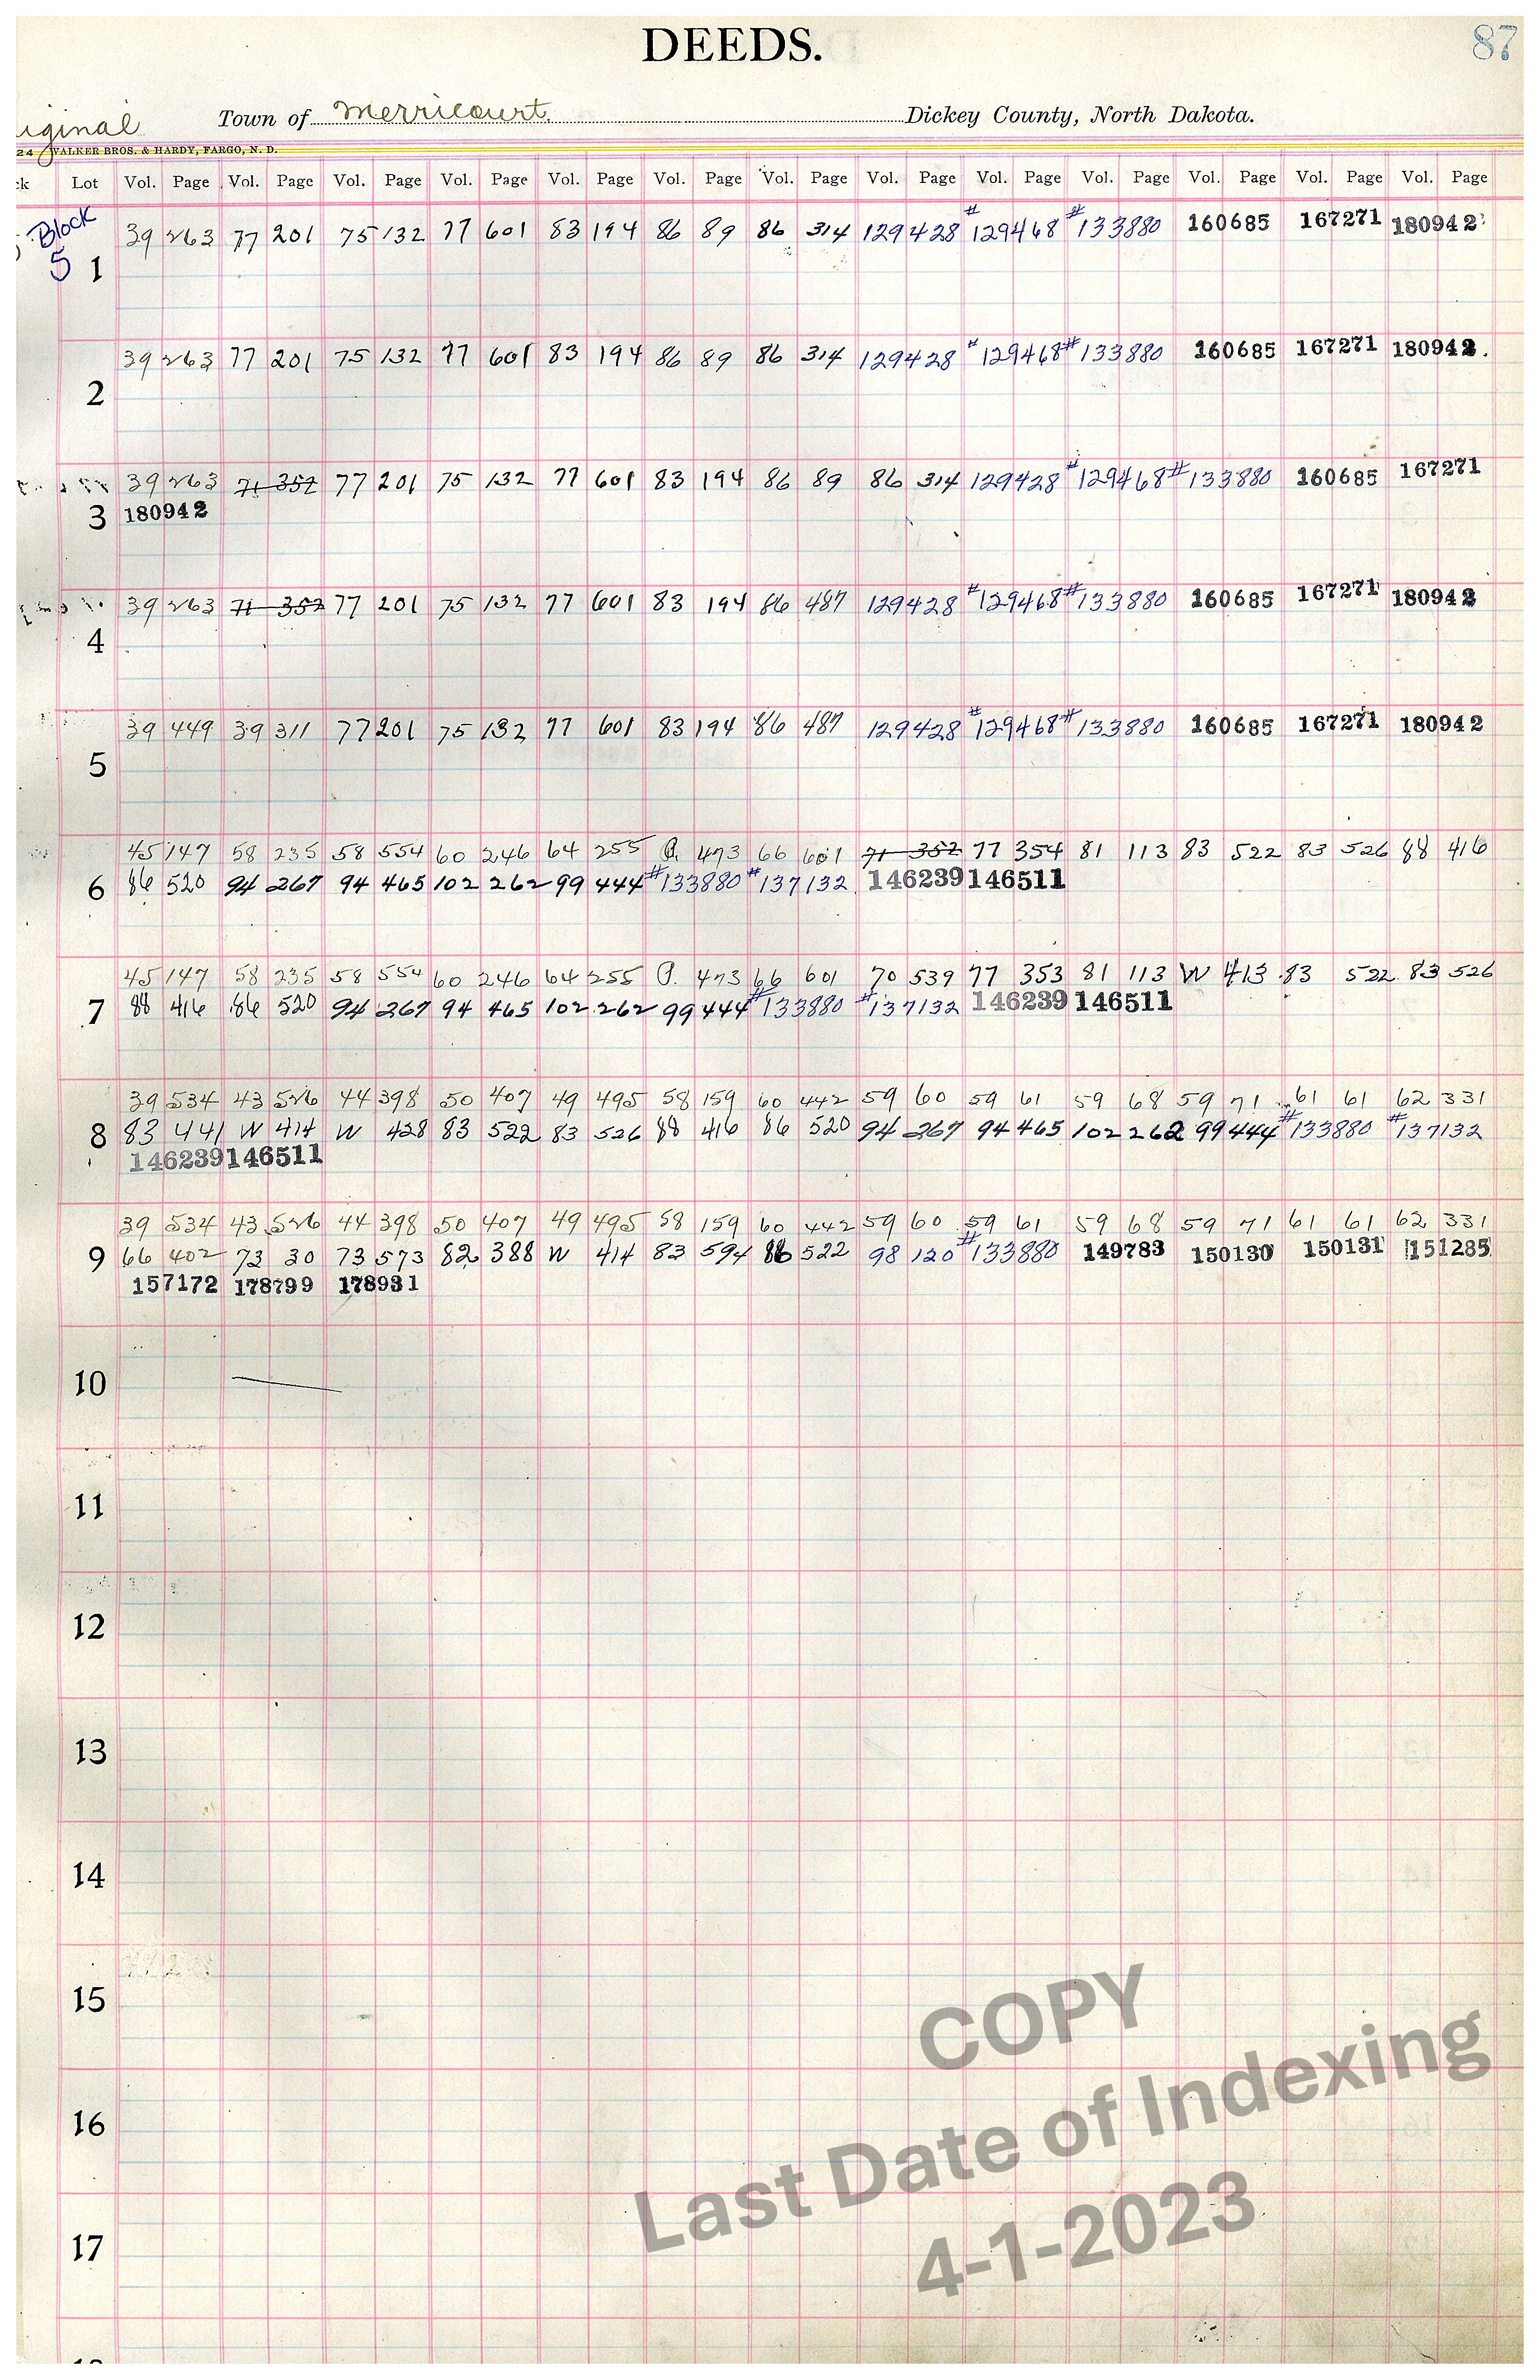 DEEDS.
87
iginal Town of Merricourt. Dickey County, North Dakota.
24 WALKER BROS. & HARDY, FARGO, N. D.
ck Lot Vol. Page Vol. Page Vol. Page Vol. Page Vol. Page Vol. Page Vol. Page Vol. Page Vol. Page Vol. Page Vol. Page Vol. Page Vol. Page
Block 39 263 77 201 75 132 77 601 83 194 86 89 86 314 129428 #129468 #133880 160685 167271 180942
5 1
39 263 77 201 75 132 77 601 83 194 86 89 86 314 129428 #129468 #133880 160685 167271 180942.
2
39 263 71 352 77 201 75 132 77 601 83 194 86 89 86 314 129428 #129468 #133880 160685 167271
3 180942
39 263 71 352 77 201 75 132 77 601 83 194 86 487 129428 #129468 #133880 160685 167271 180942
4
39 449 39 311 77 201 75 132 77 601 83 194 86 487 129428 #129468 #133880 160685 167271 180942
5
45 147 58 235 58 554 60 246 64 255 473 66 601 71 352 77 354 81 113 83 522 83 526 88 416
6 86 520 94 267 94 465 102 262 99 444 #133880 #137132 146239 146511
45 147 58 235 58 554 60 246 64 255 473 66 601 70 539 77 353 81 113 W 413 83 522 83 526
7 88 416 86 520 94 267 94 465 102 262 99 444 #133880 #137132 146239 146511
39 534 43 526 44 398 50 407 49 495 58 159 60 442 59 60 59 61 59 68 59 71 61 61 62 331
8 83 441 W 414 W 428 83 522 83 526 88 416 86 520 94 267 94 465 102 262 99 444 #133880 #137132
146239 146511
39 534 43 526 44 398 50 407 49 495 58 159 60 442 59 60 59 61 59 68 59 71 61 61 62 331
9 66 402 73 30 73 573 82 388 W 414 83 594 86 522 98 120 #133880 149783 150130 150131 151285
157172 178799 178931
10
11
12
13
14
15
16
17
COPY
Last Date of Indexing
4-1-2023